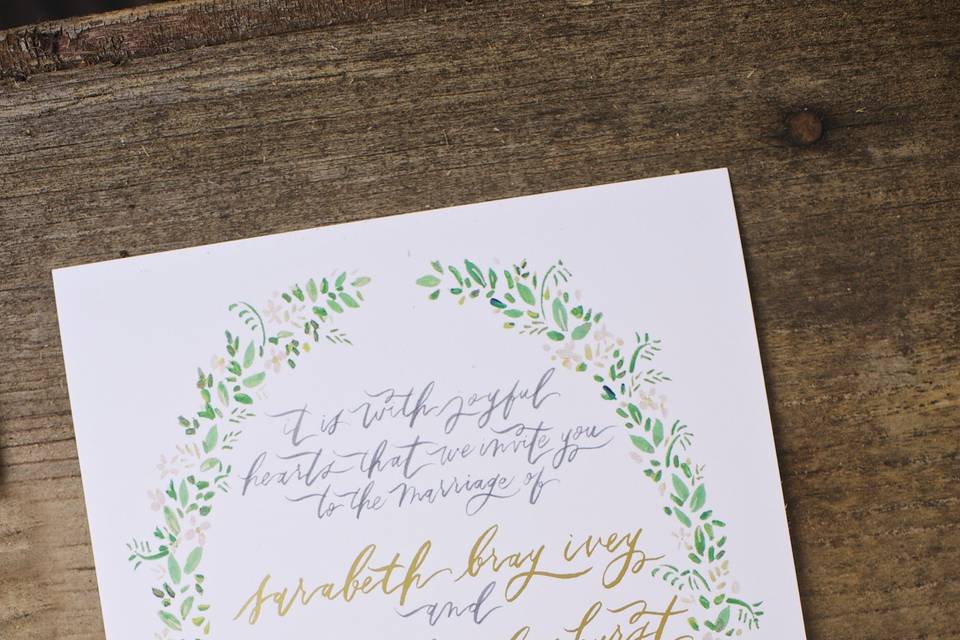 it is with joyful
hearts that we invite you
to the marriage of
sarabeth bray ivey
and